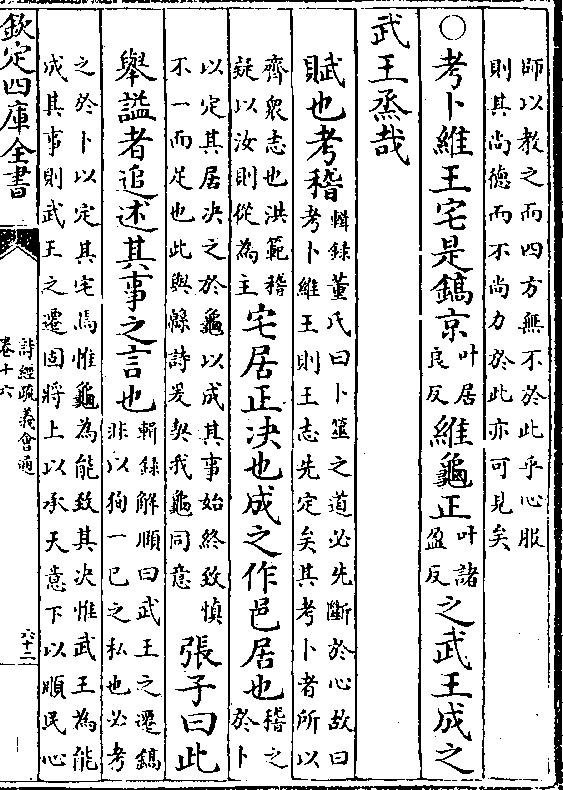 師以教之而四方無不於此乎心服
則其尚德而不尚力於此亦可見矣
○考卜維王宅是鎬京叶居良反維龜正叶諸盈反之武王成之
武王烝哉
賦也考稽輯録董氏曰卜筮之道必先斷於心故曰
考卜維王則王志先定矣其考卜者所以
齊衆志也洪範稽
疑以汝則從為主宅居正决也成之作邑居也稽之
於卜
以定其居决之於龜以成其事始終致慎
不一而足也此與緜詩爰契我龜同意張子曰此
舉諡者追述其事之言也輯録解頤曰武王之遷鎬
非以狥一已之私也必考
之於卜以定其宅焉惟龜為能致其决惟武王為能
成其事則武王之遷固將上以承天意下以順民心
欽定四庫全書
詩經疏義會通
卷十六
六十二